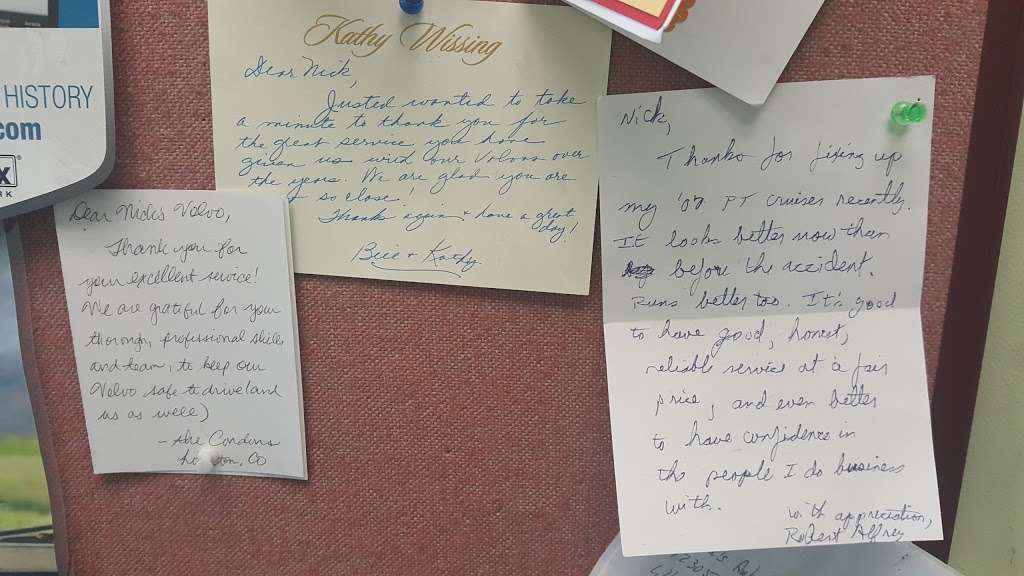 HISTORY
.com
Kathy Wissing
Dear Nick,
Justed wanted to take
a minute to thank you for
the great service you have
given us with our Volvos over
the years. We are glad you are
so close!
Thank again + have a great
day!
+ Kathy
Dear Nick's Volvo,
Thank you for
your excellent service!
We are grateful for your
thorough, professional skills
and team, to keep our
Volvo safe to drive (and
us as well)
- the Condons
CO
Nick,
Thanks for fixing up
my '07 PT Cruiser recently.
It looks better now than
before the accident.
Runs better too. It's good
to have good, honest,
reliable service at a fair
price, and even better
to have confidence in
the people I do business
with.
with appreciation,
Robert Alfrey